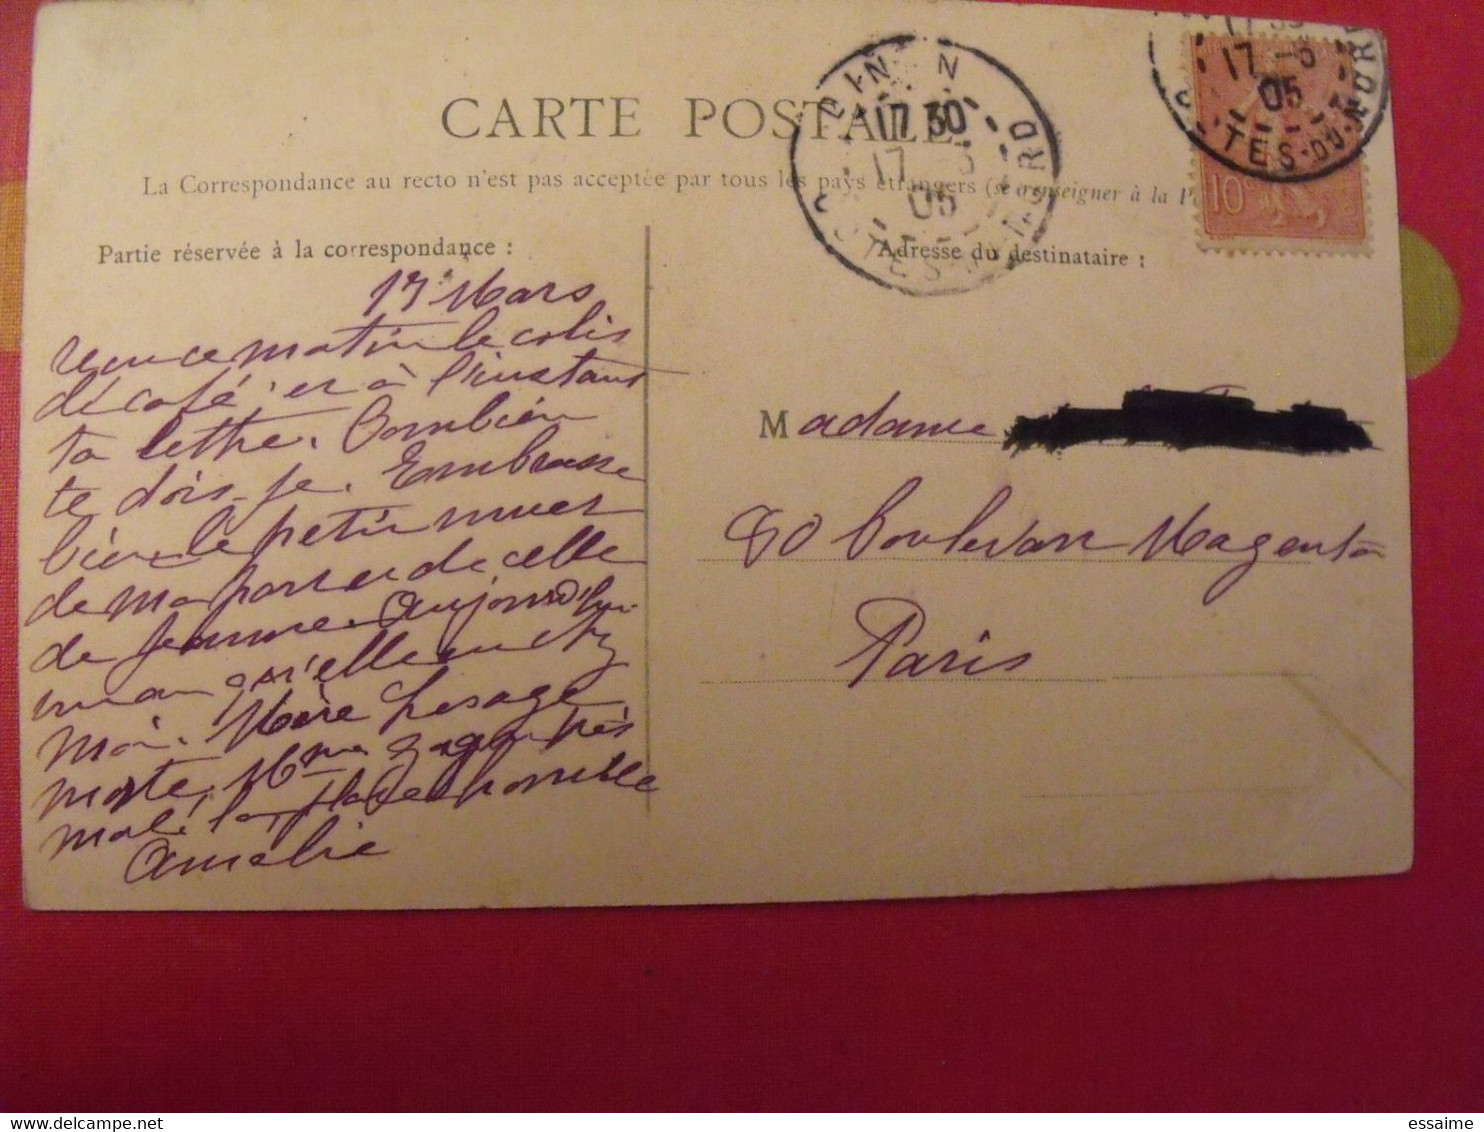 CARTE POSTALE
La Correspondance au recto n'est pas acceptée par tous les pays étrangers (se renseigner à la P
Partie réservée à la correspondance :
Adresse du destinataire :
DINAN
17 30
17 -3
05
CÔTES-DU-NORD
17 30
17 -3
05
CÔTES-DU-NORD
10c
17 Mars
reçu ce matin le colis
de café et à l'instant
ta lettre. Combien
te dois-je. Embrasse
bien le petit
de ma part et de celle
de Jeanne. Aujourd'hui
qu'elle
moi. Mère Lesage
morte, Mme
mal. la plage possible
Amélie
Madame
60 boulevard Magenta
Paris
essaime